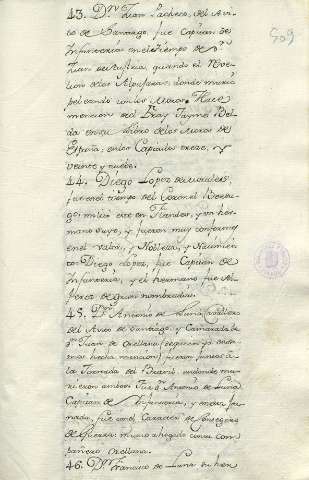 43. D.n Juan Pacheco, del Avi-
to de Santiago, fue Capitan de
Infanteria en el tiempo de D.n
Juan de Austria, quando el Rebe-
lion de las Alpujarras, donde murio
peleando con los Moros. Hace
mencion del Fray Jayme Ble-
da en su Libro de los Moros de
España, en los Capitulos trece, y
veinte y nueve.
509
44. Diego Lopez
fue en el tiempo del Coronel
en Flandes, y su her-
mano suyo, y fueron muy conformes
en el valor, y Nobleza, y Nacimien-
to: Diego Lopez, fue Capitan de
Infanteria, y el hermano fue Al-
ferez de gran nombradia.
45. D.n Antonio de Luna Cavallero
del Avito de Santiago, y Camarada de
D.n Juan de Orellana (segun ya
hecha mencion) fueron juntos a la
Jornada del donde mu-
rieron ambos. Fue D.n Antonio de Luna
Capitan de Infanteria, y en esta jor-
nada, fue con el Caracter de Consegero
de Guerra: murio ahogado con su com-
pañero Orellana.
46. D.n Francisco de Luna su